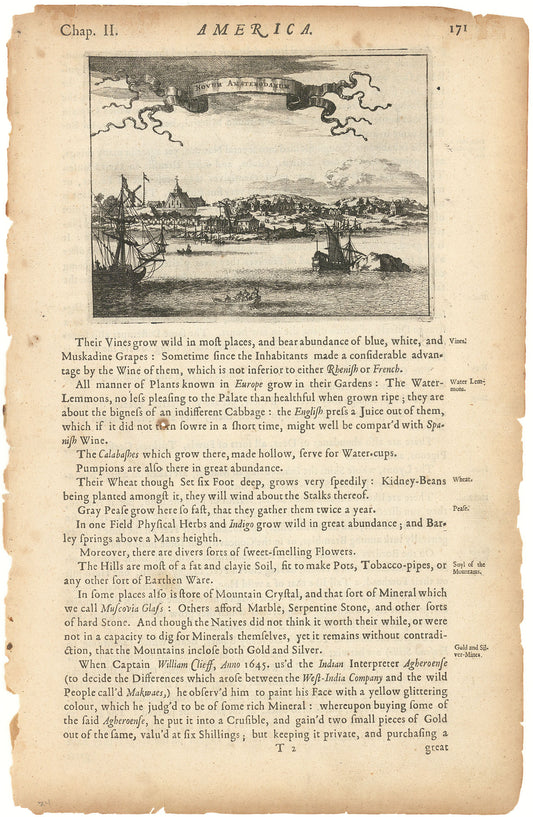 Chap. II. AMERICA. 171
NOVUM AMSTERODAMUM
Their Vines grow wild in moſt places, and bear abundance of blue, white, and Vines.
Muskadine Grapes : Sometime ſince the Inhabitants made a conſiderable advan-
tage by the Wine of them, which is not inferior to either Rheniſh or French.
All manner of Plants known in Europe grow in their Gardens : The Water- Water Lem-
Lemmons, no leſs pleaſing to the Palate than healthful when grown ripe ; they are mons.
about the bigneſs of an indifferent Cabbage : the Engliſh preſs a Juice out of them,
which if it did not turn ſowre in a ſhort time, might well be compar'd with Spa-
niſh Wine.
The Calabaſhes which grow there, made hollow, ſerve for Water-cups.
Pumpions are alſo there in great abundance.
Their Wheat though Set ſix Foot deep, grows very ſpeedily : Kidney-Beans Wheat.
being planted amongſt it, they will wind about the Stalks thereof.
Gray Peaſe grow here ſo faſt, that they gather them twice a year. Peaſe.
In one Field Phyſical Herbs and Indigo grow wild in great abundance ; and Bar-
ley ſprings above a Mans heighth.
Moreover, there are divers ſorts of ſweet-ſmelling Flowers.
The Hills are moſt of a fat and clayie Soil, fit to make Pots, Tobacco-pipes, or Soyl of the
any other ſort of Earthen Ware. Mountains.
In ſome places alſo is ſtore of Mountain Cryſtal, and that ſort of Mineral which
we call Muſcovia Glaſs : Others afford Marble, Serpentine Stone, and other ſorts
of hard Stone. And though the Natives did not think it worth their while, or were
not in a capacity to dig for Minerals themſelves, yet it remains without contradi-
ction, that the Mountains incloſe both Gold and Silver. Gold and Sil-
ver-Mines.
When Captain William Clieff, Anno 1645. us'd the Indian Interpreter Agheroenſe
(to decide the Differences which aroſe between the Weſt-India Company and the wild
People call'd Makwaes,) he obſerv'd him to paint his Face with a yellow glittering
colour, which he judg'd to be of ſome rich Mineral : whereupon buying ſome of
the ſaid Agheroenſe, he put it into a Cruſible, and gain'd two ſmall pieces of Gold
out of the ſame, valu'd at ſix Shillings ; but keeping it private, and purchaſing a
T 2 great